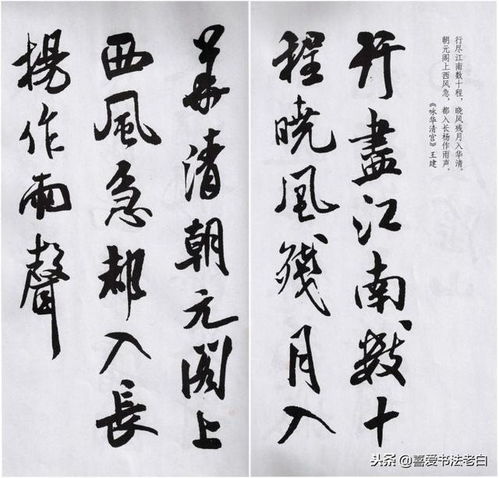 行尽江南数十程，晓风残月入华清。
朝元阁上西风急，都入长杨作雨声。
《咏华清宫》王建
行盡江南数十
程晓風残月入
華清朝元閣上
西風急都入長
楊作雨聲
头条 @喜爱书法老白